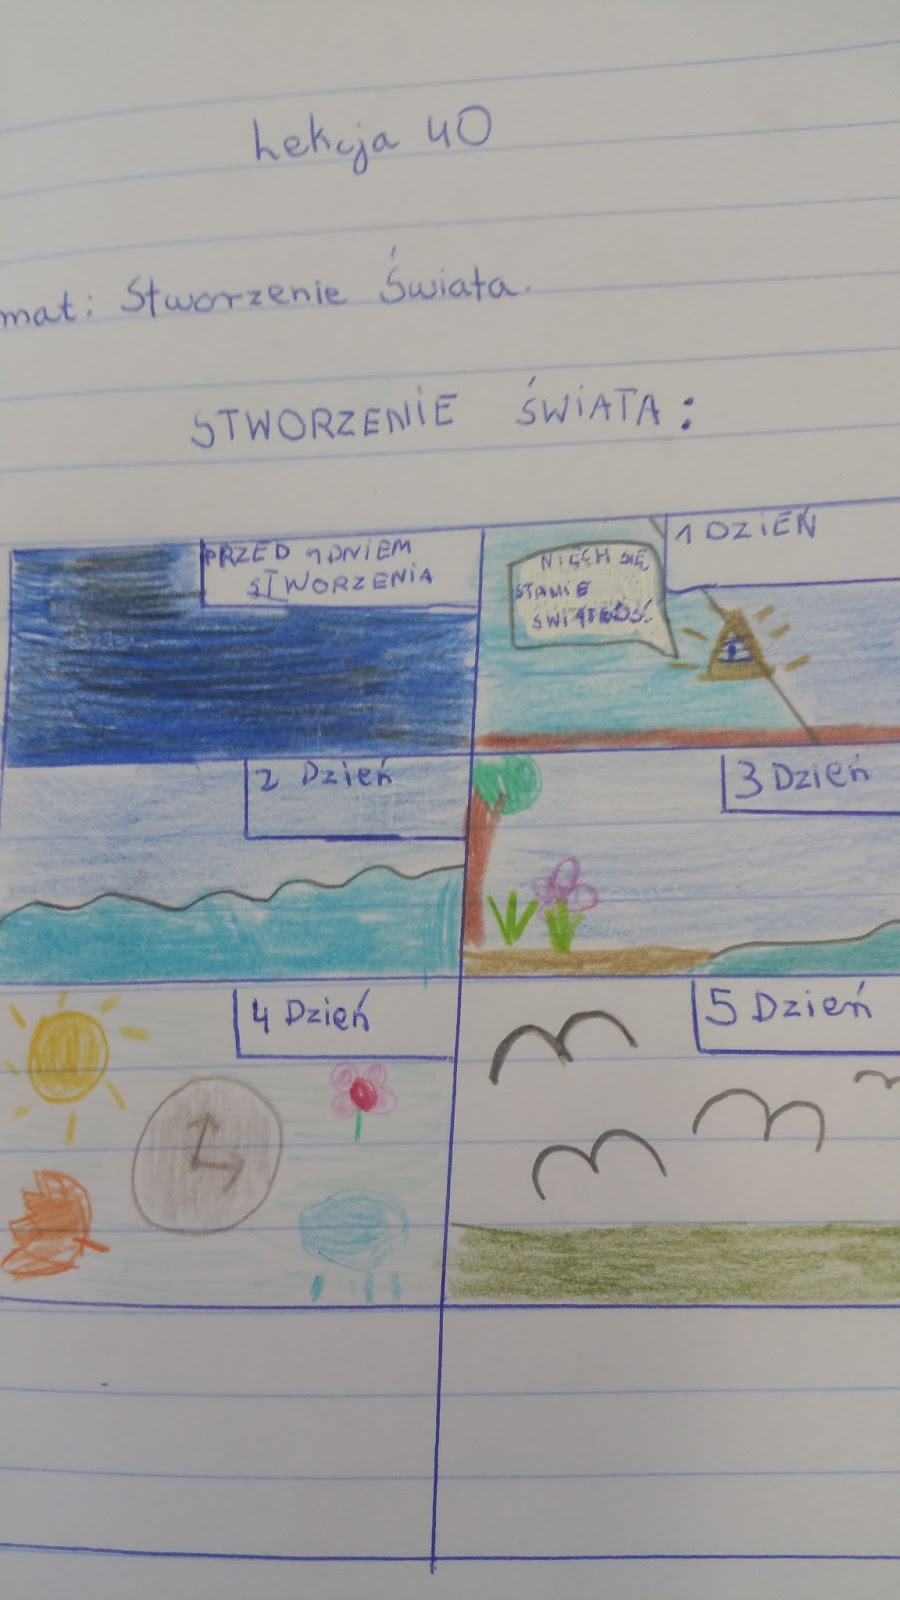 Lekcja 40
mat: Stworzenie Świata.
STWORZENIE ŚWIATA:
PRZED 1 DNIEM
STWORZENIA
1 DZIEŃ
NIECH SIĘ
STANIE
2 Dzień
3 Dzień
4 Dzień
5 Dzień